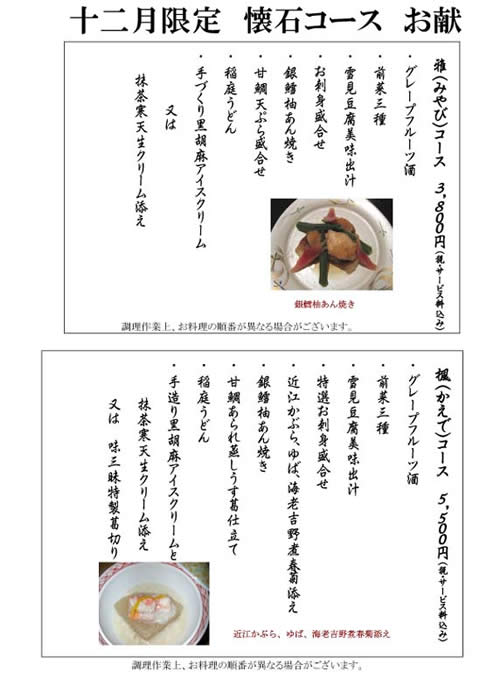 十二月限定 懐石コース お献
雅(みやび)コース 3,800円(税・サービス料込み)
・グレープフルーツ酒
・前菜三種
・雪見豆腐美味出汁
・お刺身盛合せ
・銀鱈柚あん焼き
・甘鯛天ぷら盛合せ
・稲庭うどん
・手づくり黒胡麻アイスクリーム
又は
抹茶寒天生クリーム添え
銀鱈柚あん焼き
調理作業上、お料理の順番が異なる場合がございます。
楓(かえで)コース 5,500円(税・サービス料込み)
・グレープフルーツ酒
・前菜三種
・雪見豆腐美味出汁
・特選お刺身盛合せ
・近江かぶら、ゆば、海老吉野煮春菊添え
・銀鱈柚あん焼き
・甘鯛あられ蒸しうす葛仕立て
・稲庭うどん
・手造り黒胡麻アイスクリームと
抹茶寒天生クリーム添え
又は 味三昧特製葛切り
近江かぶら、ゆば、海老吉野煮春菊添え
調理作業上、お料理の順番が異なる場合がございます。